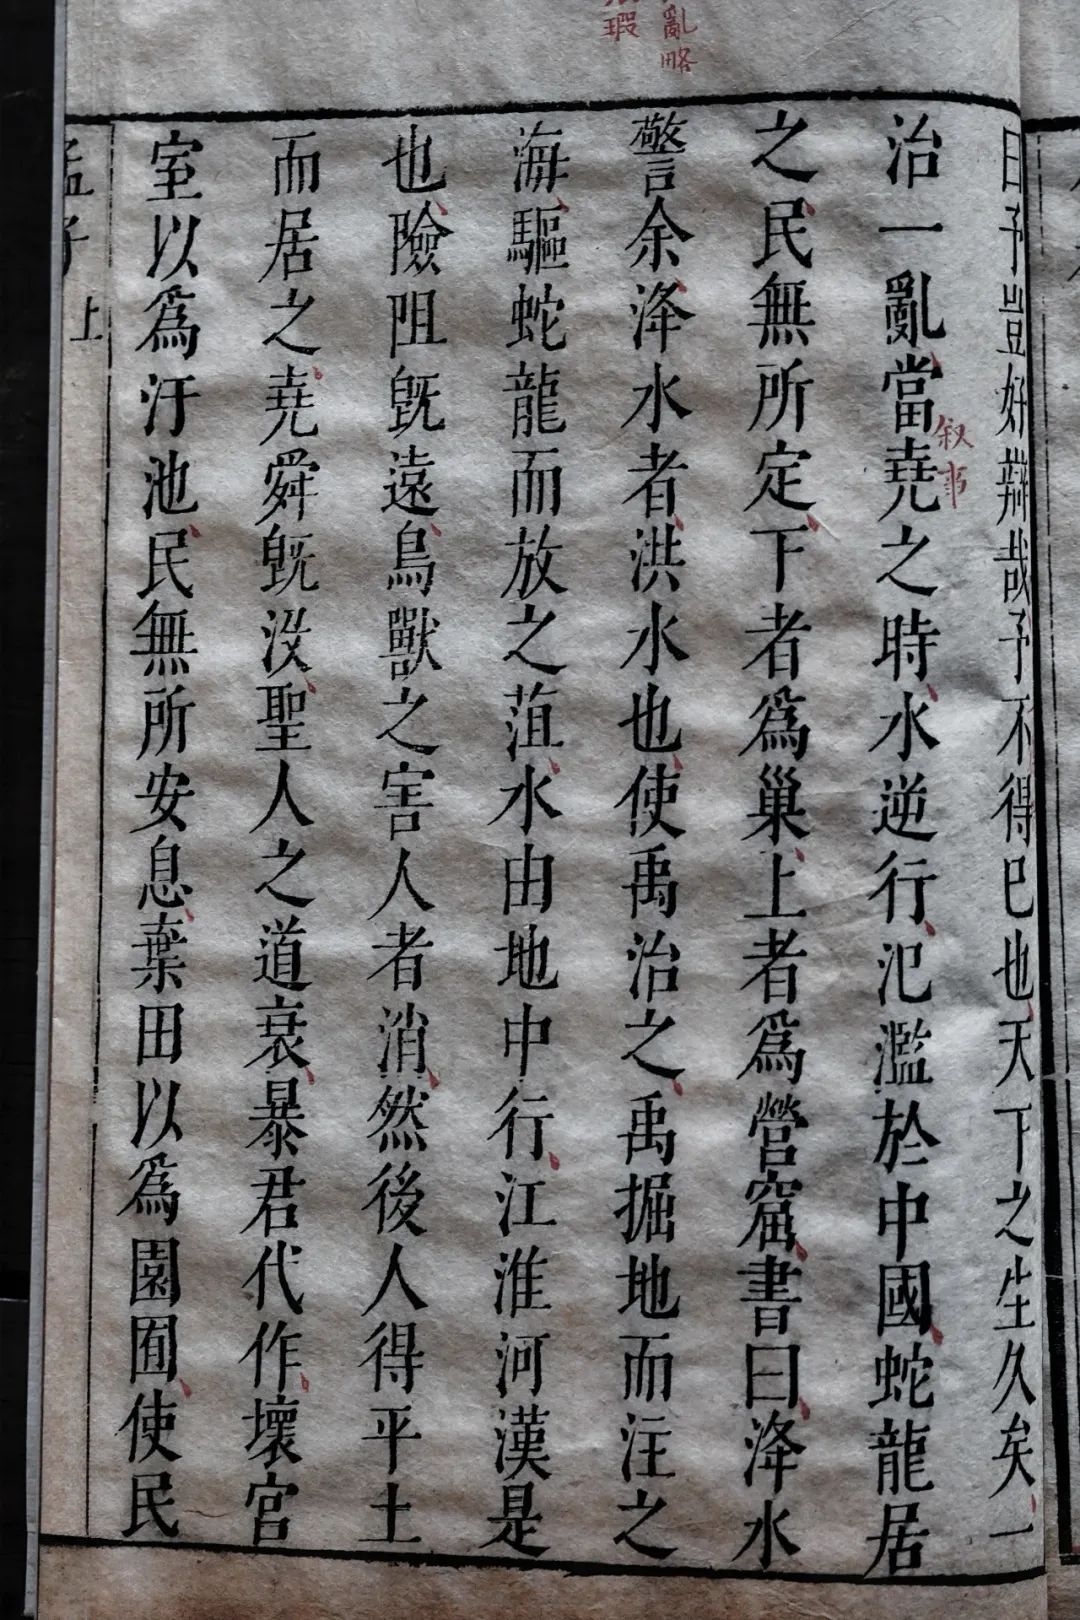 亂略
瑕
曰予豈好辯哉予不得已也天下之生久矣一
治一亂當堯之時水逆行氾濫於中國蛇龍居
叙事
之民無所定下者爲巢上者爲營窟書曰洚水
警余洚水者洪水也使禹治之禹掘地而注之
海驅蛇龍而放之菹水由地中行江淮河漢是
也險阻旣遠鳥獸之害人者消然後人得平土
而居之堯舜旣沒聖人之道衰暴君代作壞宫
室以爲汙池民無所安息棄田以爲園囿使民
孟子 上